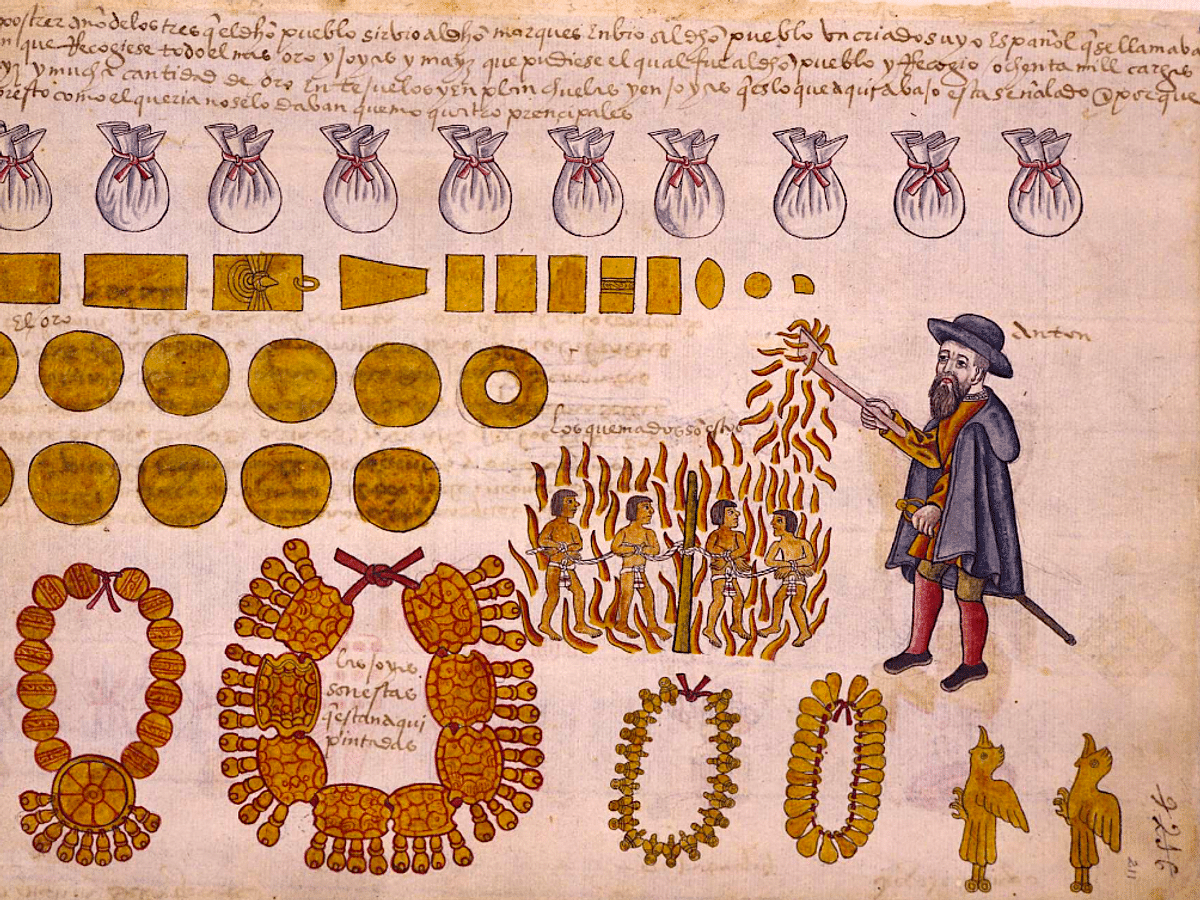 postrer año de los tres q̃ el dho pueblo sirbio al dho marques enbio al dho pueblo vn criado suyo español q̃ se llamava
que Recogiese todo el mas oro y joyas y mayz que pudiese el qual fue al dho pueblo y Recogio ochenta mill cargas
y mucha cantidad de oro en tejuelos y en planchuelas y en joyas q̃ es lo que aqui abajo esta señalado porque
presto como el queria no se lo daban quemo quatro prencipales
El oro
Anton
los quemados so estos
las joyas
son estas
q̃ estan aqui
pintadas
211